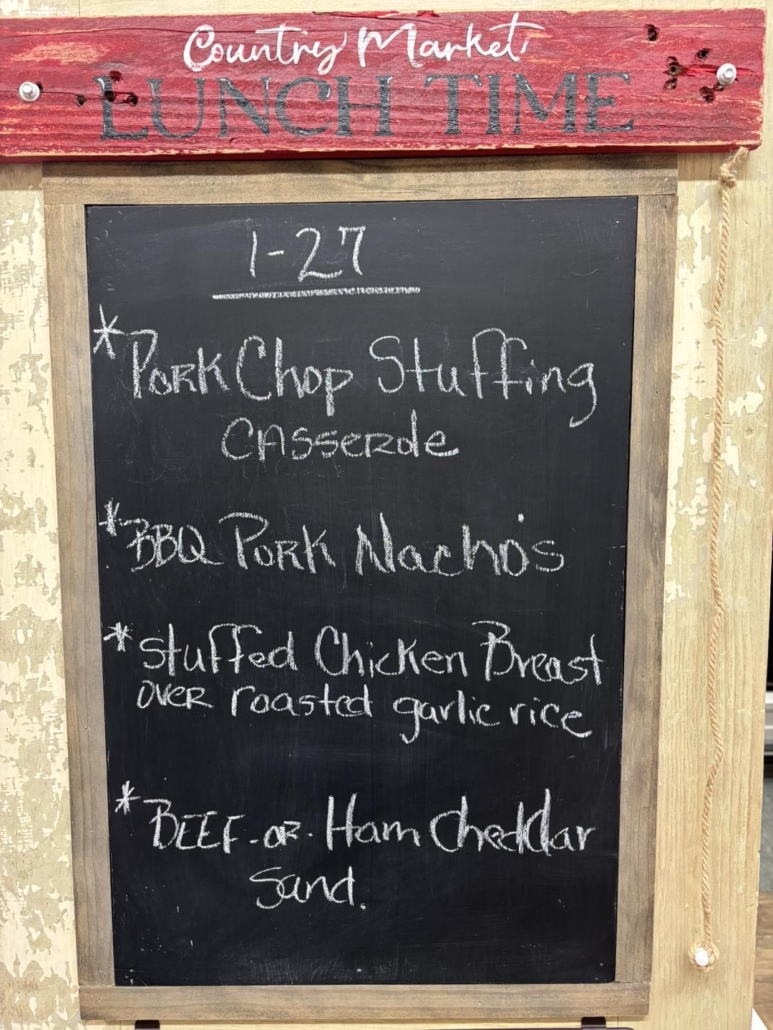 Country Market
LUNCH TIME
1-27
*Pork Chop Stuffing
Casserole
*BBQ Pork Nacho's
*Stuffed Chicken Breast
over roasted garlic rice
*Beef -or- Ham Cheddar
Sand.